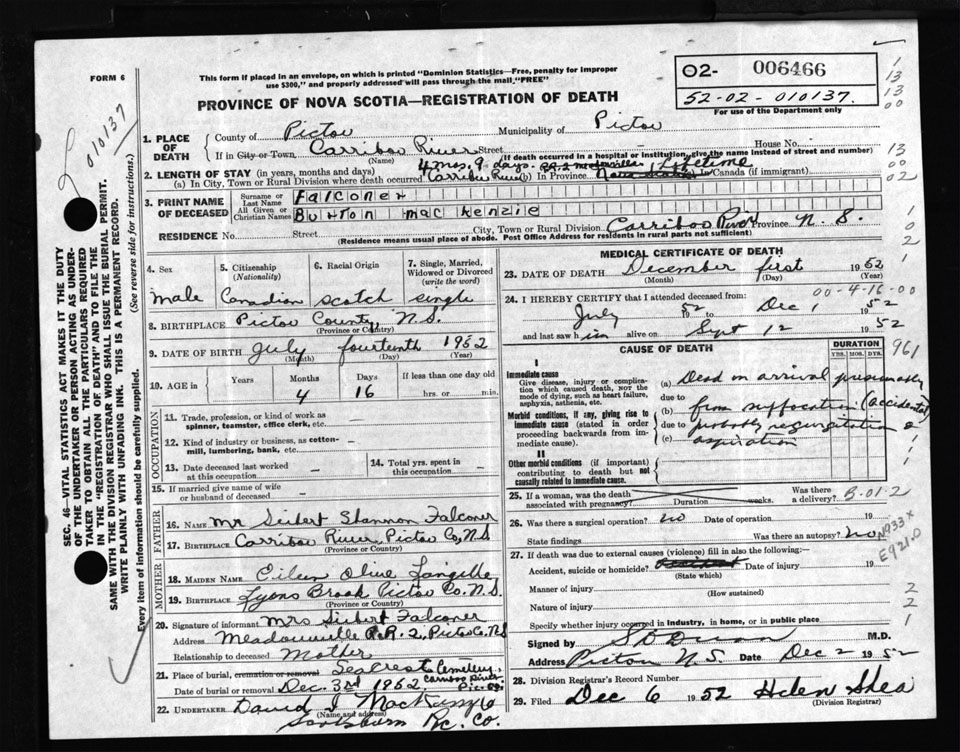 FORM 6
This form if placed in an envelope, on which is printed "Dominion Statistics—Free, penalty for improper
use $300," and properly addressed will pass through the mail "FREE"
O2- 006466
52-02-010137.
For use of the Department only
PROVINCE OF NOVA SCOTIA—REGISTRATION OF DEATH
010137
1. PLACE OF DEATH
County of Pictou Municipality of Pictou
If in City or Town Carribou River Street House No.
(Name) (If death occurred in a hospital or institution, give the name instead of street and number)
2. LENGTH OF STAY (in years, months and days) 4 mos. 9. days. Lifetime
(a) In City, Town or Rural Division where death occurred Carribou River (b) In Province Nova Scotia In Canada (if immigrant)
3. PRINT NAME OF DECEASED
Surname or Last Name Falconer
All Given or Christian Names Burton mac Kenzie
RESIDENCE No. Street City, Town or Rural Division Carriboo River N. S.
(Residence means usual place of abode. Post Office Address for residents in rural parts not sufficient)
4. Sex male
5. Citizenship (Nationality) Canadian
6. Racial Origin scotch
7. Single, Married, Widowed or Divorced (write the word) single
8. BIRTHPLACE Pictou County, N.S.
(Province or Country)
9. DATE OF BIRTH July fourteenth 1952
(Month) (Day) (Year)
10. AGE in Years Months 4 Days 16 If less than one day old hrs. or min.
OCCUPATION
11. Trade, profession, or kind of work as spinner, teamster, office clerk, etc. —
12. Kind of industry or business, as cotton-mill, lumbering, bank, etc. —
13. Date deceased last worked at this occupation —
14. Total yrs. spent in this occupation —
15. If married give name of wife or husband of deceased —
FATHER
16. NAME Mr Seibert Shannon Falconer
17. BIRTHPLACE Carribou River, Pictou Co, N.S
(Province or Country)
MOTHER
18. MAIDEN NAME Eileen Olive Langille
19. BIRTHPLACE Lyons Brook Pictou Co. N.S.
(Province or Country)
20. Signature of informant Mrs Seibert Falconer
Address Meadowville R.R. 2, Pictou Co, N.S
Relationship to deceased Mother
21. Place of burial, cremation or removal Seacrest Cemetery, Carriboo River
Date of burial or removal Dec. 3rd 1952 Pic. Co.
22. UNDERTAKER David
(Name and address)
Scotsburn Pic. Co.
MEDICAL CERTIFICATE OF DEATH
23. DATE OF DEATH December first 1952
(Month) (Day)
00-4-16-00
24. I HEREBY CERTIFY that I attended deceased from:
July 52 to Dec 1 1952
and last saw him alive on Sept 12 1952
CAUSE OF DEATH DURATION
YRS. MOS. DYS.
961
I
Immediate cause
Give disease, injury or complication which caused death, NOT the mode of dying, such as heart failure, asphyxia, asthenia, etc.
(a) Dead on arrival presumably
due to
Morbid conditions, if any, giving rise to immediate cause (stated in order proceeding backwards from immediate cause).
(b) from suffocation (accidental)
due to probably regurgitation &
(c) aspiration
II
Other morbid conditions (if important) contributing to death but not causally related to immediate cause.
25. If a woman, was the death associated with pregnancy? Duration weeks. Was there a delivery?
B-01-2
26. Was there a surgical operation? no Date of operation 19
State findings Was there an autopsy? no
N933 x
E921.0
27. If death was due to external causes (violence) fill in also the following:—
Accident, suicide or homicide? accident Date of injury 19
(State which)
Manner of injury
(How sustained)
Nature of injury
Specify whether injury occurred in industry, in home, or in public place
Signed by M.D.
Address Pictou N.S. Date Dec 2 1952
28. Division Registrar's Record Number
29. Filed Dec 6 1952 Helen Shea
(Division Registrar)
SEC. 46—VITAL STATISTICS ACT MAKES IT THE DUTY
OF THE UNDERTAKER OR PERSON ACTING AS UNDER-
TAKER TO OBTAIN ALL THE PARTICULARS REQUIRED
IN THE "REGISTRATION OF DEATH" AND TO FILE THE
SAME WITH THE DIVISION REGISTRAR WHO SHALL ISSUE THE BURIAL PERMIT.
WRITE PLAINLY WITH UNFADING INK. THIS IS A PERMANENT RECORD.
Every item of information should be carefully supplied. (See reverse side for instructions.)
1
13
13
00
13
00
02
1
0
2
1
1
1
1
2
2
1